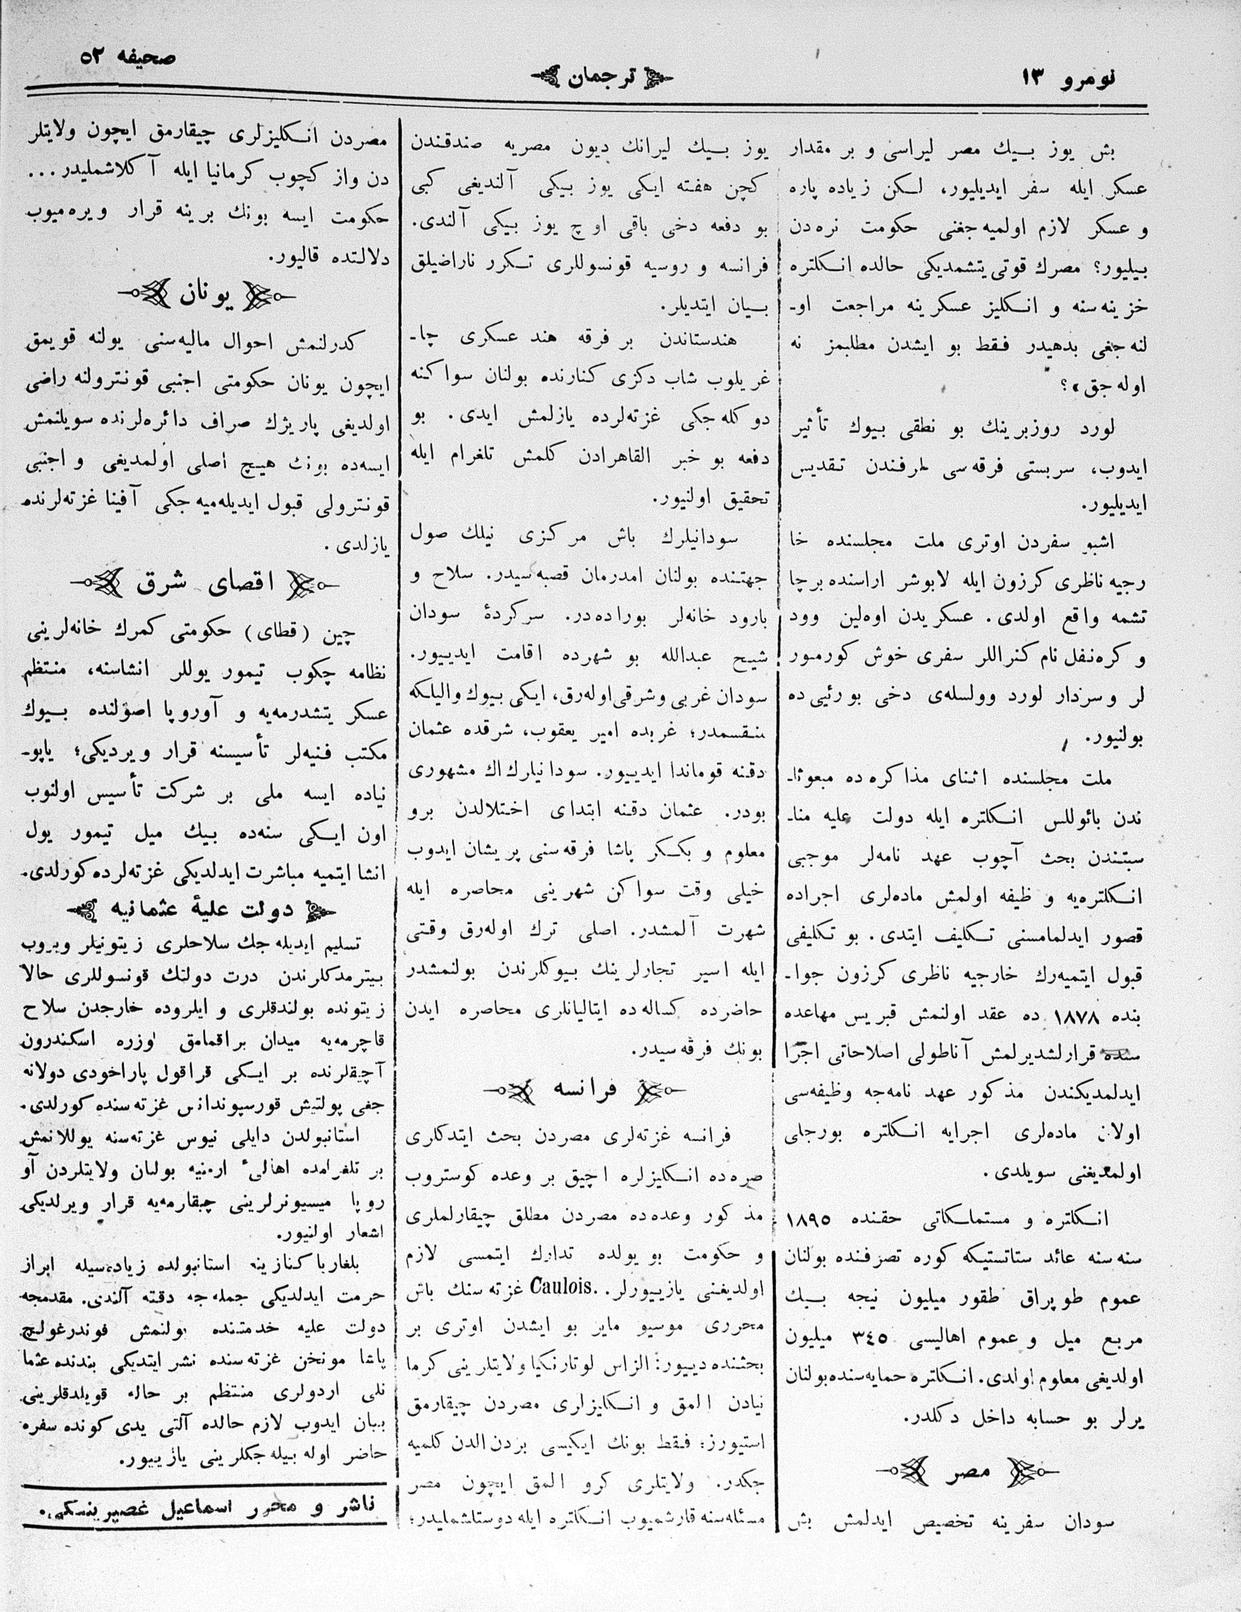 نومرو ١٣
ترجمان
صحیفه ٥٢
بش یوز بیك مصر لیراسی و بر مقدار
عسكر ایله سفر ایدیلیور، لكن زیاده پاره
و عسكر لازم اولمیه جغنی حكومت نره دن
بیلیور؟ مصرك قوتی یتشمدیكی حالده انكلتره
خزینه سنه و انكلیز عسكرینه مراجعت او-
لنه جغی بدهیدر فقط بو ایشدن مطلبمز نه
اوله جق»؟
لورد روزبرینك بو نطقی بیوك تأثیر
ایدوب، سربستی فرقه سی طرفندن تقدیس
ایدیلیور.
اشبو سفردن اوتری ملت مجلسنده خا
رجیه ناظری كرزون ایله لابوشر اراسنده برچا
تشمه واقع اولدی. عسكریدن اوه لین وود
و كره نفل نام كنراللر سفری خوش كورمور
لر وسردار لورد وولسله ی دخی بو رئیی ده
بولنیور.
ملت مجلسنده اثنای مذاكره ده مبعوثا-
ندن بائوللس انكلتره ایله دولت علیه منا-
سبتندن بحث آچوب عهد نامه لر موجبی
انكلتره یه وظیفه اولمش ماده لری اجراده
قصور ایدلمامسنی تكلیف ایتدی. بو تكلیفی
قبول ایتمیه رك خارجیه ناظری كرزون جوا-
بنده ١٨٧٨ ده عقد اولنمش قبریس مهاعده
سنده قرارلشدیرلمش آناطولی اصلاحاتی اجرا
ایدلمدیكندن مذكور عهد نامه جه وظیفه سی
اولان ماده لری اجرایه انكلتره بورجلی
اولمدیغنی سویلدی.
انكلتره و مستملكاتی حقنده ١٨٩٥
سنه سنه عائد ستاتستیكه كوره تصرفنده بولنان
عموم طوپراق طقور میلیون نیجه بیك
مربع میل و عموم اهالیسی ٣٤٥ میلیون
اولدیغی معلوم اولدی. انكلتره حمایه سنده بولنان
یرلر بو حسابه داخل دكلدر.
مصر
سودان سفرینه تخصیص ایدلمش بش
یوز بیك لیرانك دیون مصریه صندقندن
كچن هفته ایكی یوز بیكی آلندیغی كبی
بو دفعه دخی باقی اوچ یوز بیكی آلندی.
فرانسه و روسیه قونسوللری تكرر ناراضیلق
بیان ایتدیلر.
هندستاندن بر فرقه هند عسكری چا-
غریلوب شاب دكزی كنارنده بولنان سواكنه
دوكله جكی غزته لرده یازلمش ایدی. بو
دفعه بو خبر القاهرادن كلمش تلغرام ایله
تحقیق اولنیور.
سودانیلرك باش مركزی نیلك صول
جهتنده بولنان امدرمان قصبه سیدر. سلاح و
بارود خانه لر بوراده در. سركردۀ سودان
شیخ عبدالله بو شهرده اقامت ایدییور.
سودان غربی وشرقی اوله رق، ایكی بیوك والیلكه
منقسمدر؛ غربده امیر یعقوب، شرقده عثمان
دقنه قوماندا ایدییور. سودانیلرك اڭ مشهوری
بودر. عثمان دقنه ابتدای اختلالدن برو
معلوم و بككر پاشا فرقه سنی پریشان ایدوب
خیلی وقت سواكن شهرینی محاصره ایله
شهرت آلمشدر. اصلی ترك اوله رق وقتی
ایله اسیر تجارلرینك بیوكلرندن بولنمشدر
حاضرده كساله ده ایتالیانلری محاصره ایدن
بونك فرقه سیدر.
فرانسه
فرانسه غزته لری مصردن بحث ایتدكاری
صره ده انكلیزلره اچیق بر وعده كوستروب
مذكور وعده ده مصردن مطلق چیقارلملری
و حكومت بو یولده تدارك ایتمسی لازم
اولدیغنی یازییورلر. Caulois. غزته سنك باش
محرری موسیو مایر بو ایشدن اوتری بر
بحثنده دییور: الزاس لوتارنكیا ولایتلرینی كرما
نیادن المق و انكلیزلری مصردن چیقارمق
استیورز؛ فقط بونك ایكیسی بردن الدن كلمیه
جكدر. ولایتلری كرو المق ایچون مصر
مسئله سنه قارشمیوب انكلتره ایله دوستلشملیدر؛
مصردن انكلیزلری چیقارمق ایچون ولایتلر
دن واز كچوب كرمانیا ایله آ كلاشملیدر...
حكومت ایسه بونك برینه قرار ویره میوب
دلالتده قالیور.
یونان
كدرلنمش احوال مالیه سنی یولنه قویمق
ایچون یونان حكومتی اجنبی قونترولنه راضی
اولدیغی پاریژك صراف دائره لرنده سویلنمش
ایسه ده بونك هیچ اصلی اولمدیغی و اجنبی
قونترولی قبول ایدیله میه جكی آفینا غزته لرنده
یازلدی.
اقصای شرق
چین (قطای) حكومتی كمرك خانه لرینی
نظامه چكوب تیمور یوللر انشاسنه، منتظم
عسكر یتشدرمه یه و آوروپا اصولنده بیوك
مكتب فنیه لر تأسیسنه قرار ویردیكی؛ یاپو-
نیاده ایسه ملی بر شركت تأسیس اولنوب
اون ایكی سنه ده بیك میل تیمور یول
انشا ایتمیه مباشرت ایدلدیكی غزته لرده كورلدی.
دولت علیۀ عثمانیه
تسلیم ایدیله جك سلاحلری زیتونیلر ویروب
بیترمدكلرندن درت دولتك قونسوللری حالا
زیتونده بولندقلری و ایلروده خارجدن سلاح
قاچرمه یه میدان براقمامق اوزره اسكندرون
آچیقلرنده بر ایكی قراقول پاراخودی دولانه
جغی پولتیش قورسپوندانس غزته سنده كورلدی.
استانبولدن دایلی نیوس غزته سنه یوللانمش
بر تلغرامده اهالیٔ ارمنیه بولنان ولایتلردن آو
روپا میسیونرلرینی چیقارمه یه قرار ویرلدیكی
اشعار اولنیور.
بلغاریا كنازینه استانبولده زیاده سیله ابراز
حرمت ایدلدیكی جمله جه دقته آلندی. مقدمجه
دولت علیه خدمتنده بولنمش فوندرغولچ
پاشا مونخن غزته سنده نشر ایتدیكی بندنده عثما
نلی اردولری منتظم بر حاله قویلدقلرینی
بیان ایدوب لازم حالده آلتی یدی كونده سفره
حاضر اوله بیله جكلرینی یازییور.
ناشر و محرر اسماعیل غصپرینسكی.